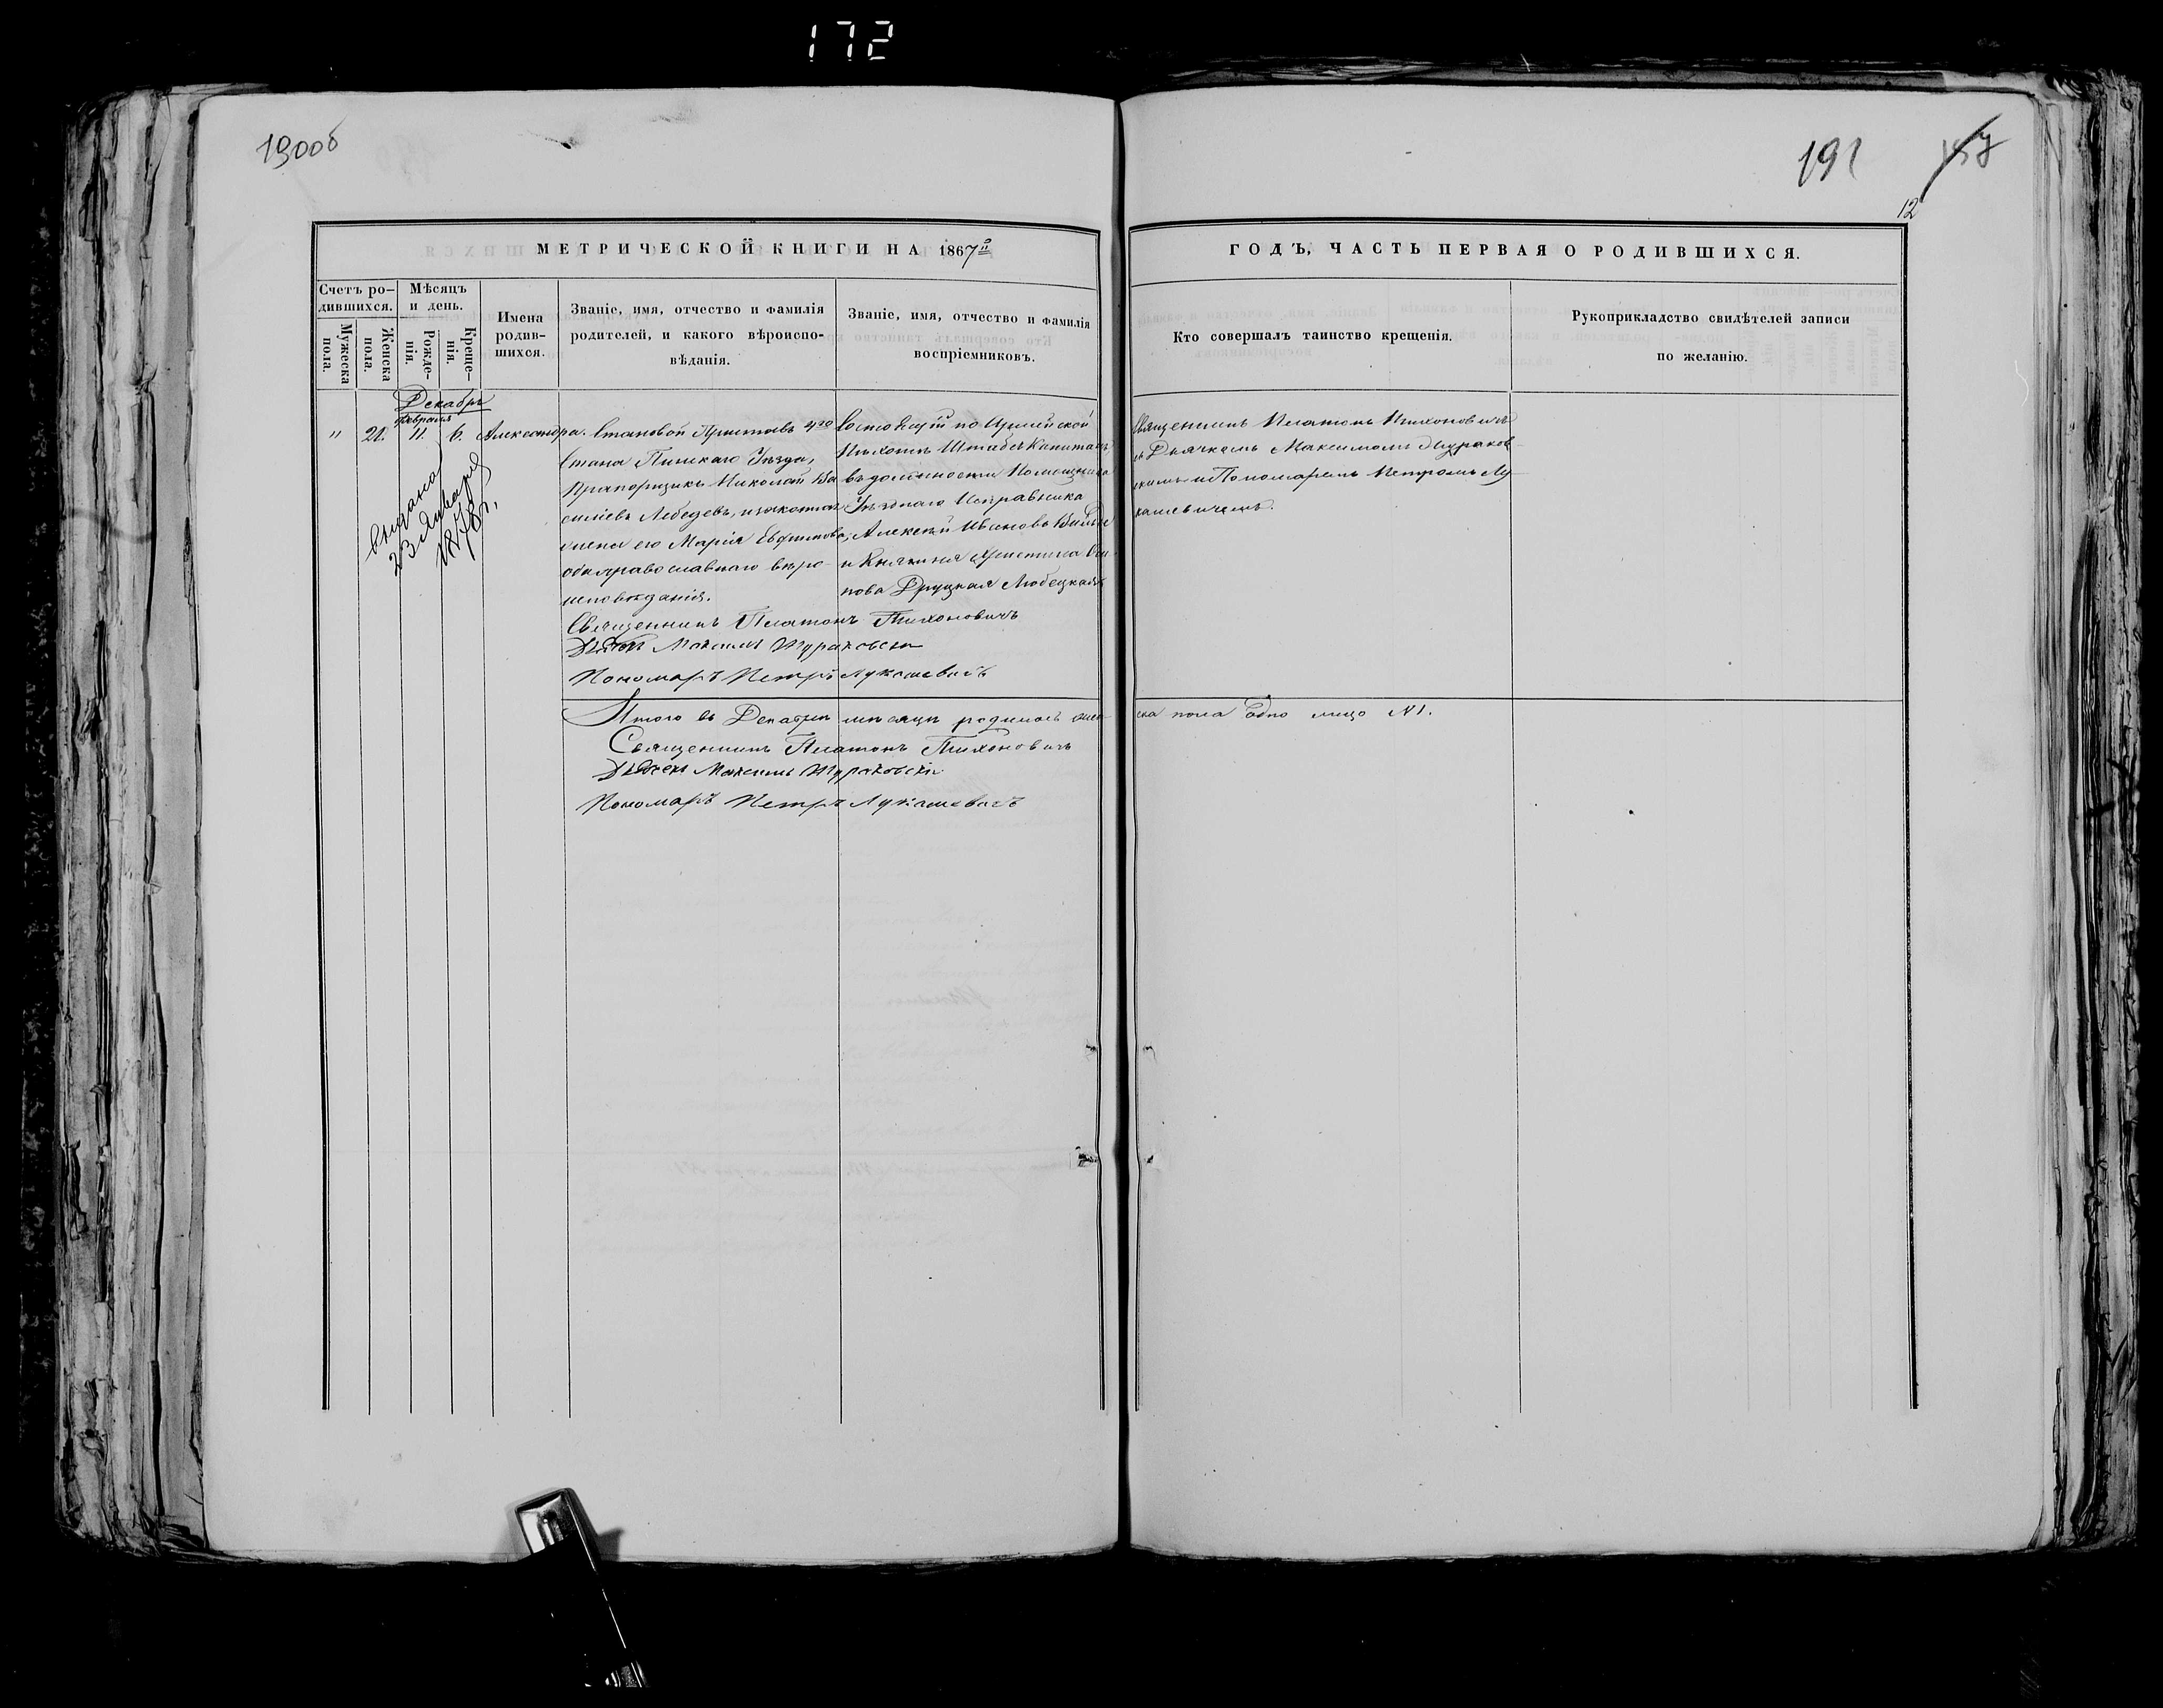 172
190об
191
12
МЕТРИЧЕСКОЙ КНИГИ НА 1867й
ГОДЪ, ЧАСТЬ ПЕРВАЯ О РОДИВШИХСЯ.
Счетъ ро-
дившихся.
Мужеска
пола.
Женска
пола.
Мѣсяцъ
и день.
Рожде-
нія.
Креще-
нія.
Имена
родив-
шихся.
Званіе, имя, отчество и фамилія
родителей, и какого вѣроиспо-
вѣданія.
Званіе, имя, отчество и фамилія
воспріемниковъ.
Кто совершалъ таинство крещенія.
Рукоприкладство свидѣтелей записи
по желанію.
Декабрь
февраля
" 21. 11. 6.
Александра.
выдана
23 Января
1878 г.
Становой Приставъ 4го
Стана Пинскаго Уѣзда,
Прапорщикъ Николай Ва
силіевъ Лебедевъ, и законная
жена его Марія Евфимова,
оба православнаго вѣро-
исповѣданія.
Состоящій по Армейской
Пѣхотѣ Штабсъ Капитанъ,
въ должности Помощника
Уѣзднаго Исправника
Алексѣй Ивановъ
и Княжна Христина
пова Друцкая Любецкая
Священникъ Платонъ Тихоновичъ
съ Дьячкомъ Максимомъ Жураков-
скимъ и Пономаремъ Петромъ Лу
кашевичемъ.
Священникъ Платонъ Тихоновичъ
Максимъ Жураковскій
Пономарь Петръ Лукашевичъ
Итого въ Декабрѣ мѣсяцѣ родилось жен-
ска пола Одно лицо №1.
Священникъ Платонъ Тихоновичъ
Дьячекъ Максимъ Жураковскій
Пономарь Петръ Лукашевичъ